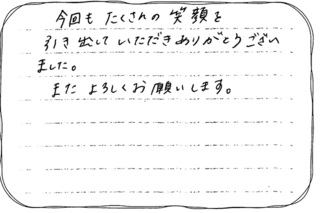 今回も たくさんの 笑顔を
引き出して いただき ありがとうござい
ました。
また よろしくお願いします。